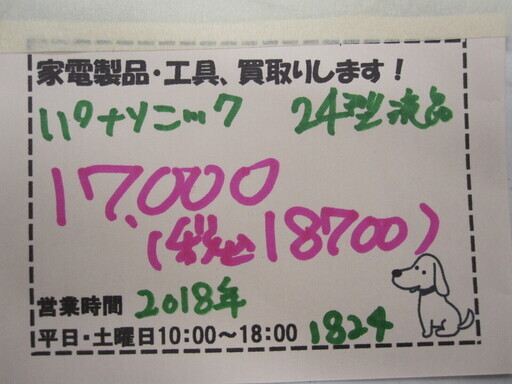 家電製品・工具、買取りします！
パナソニック 24型液晶
17,000
(税込18700)
営業時間 2018年
平日・土曜日10:00～18:00 1824